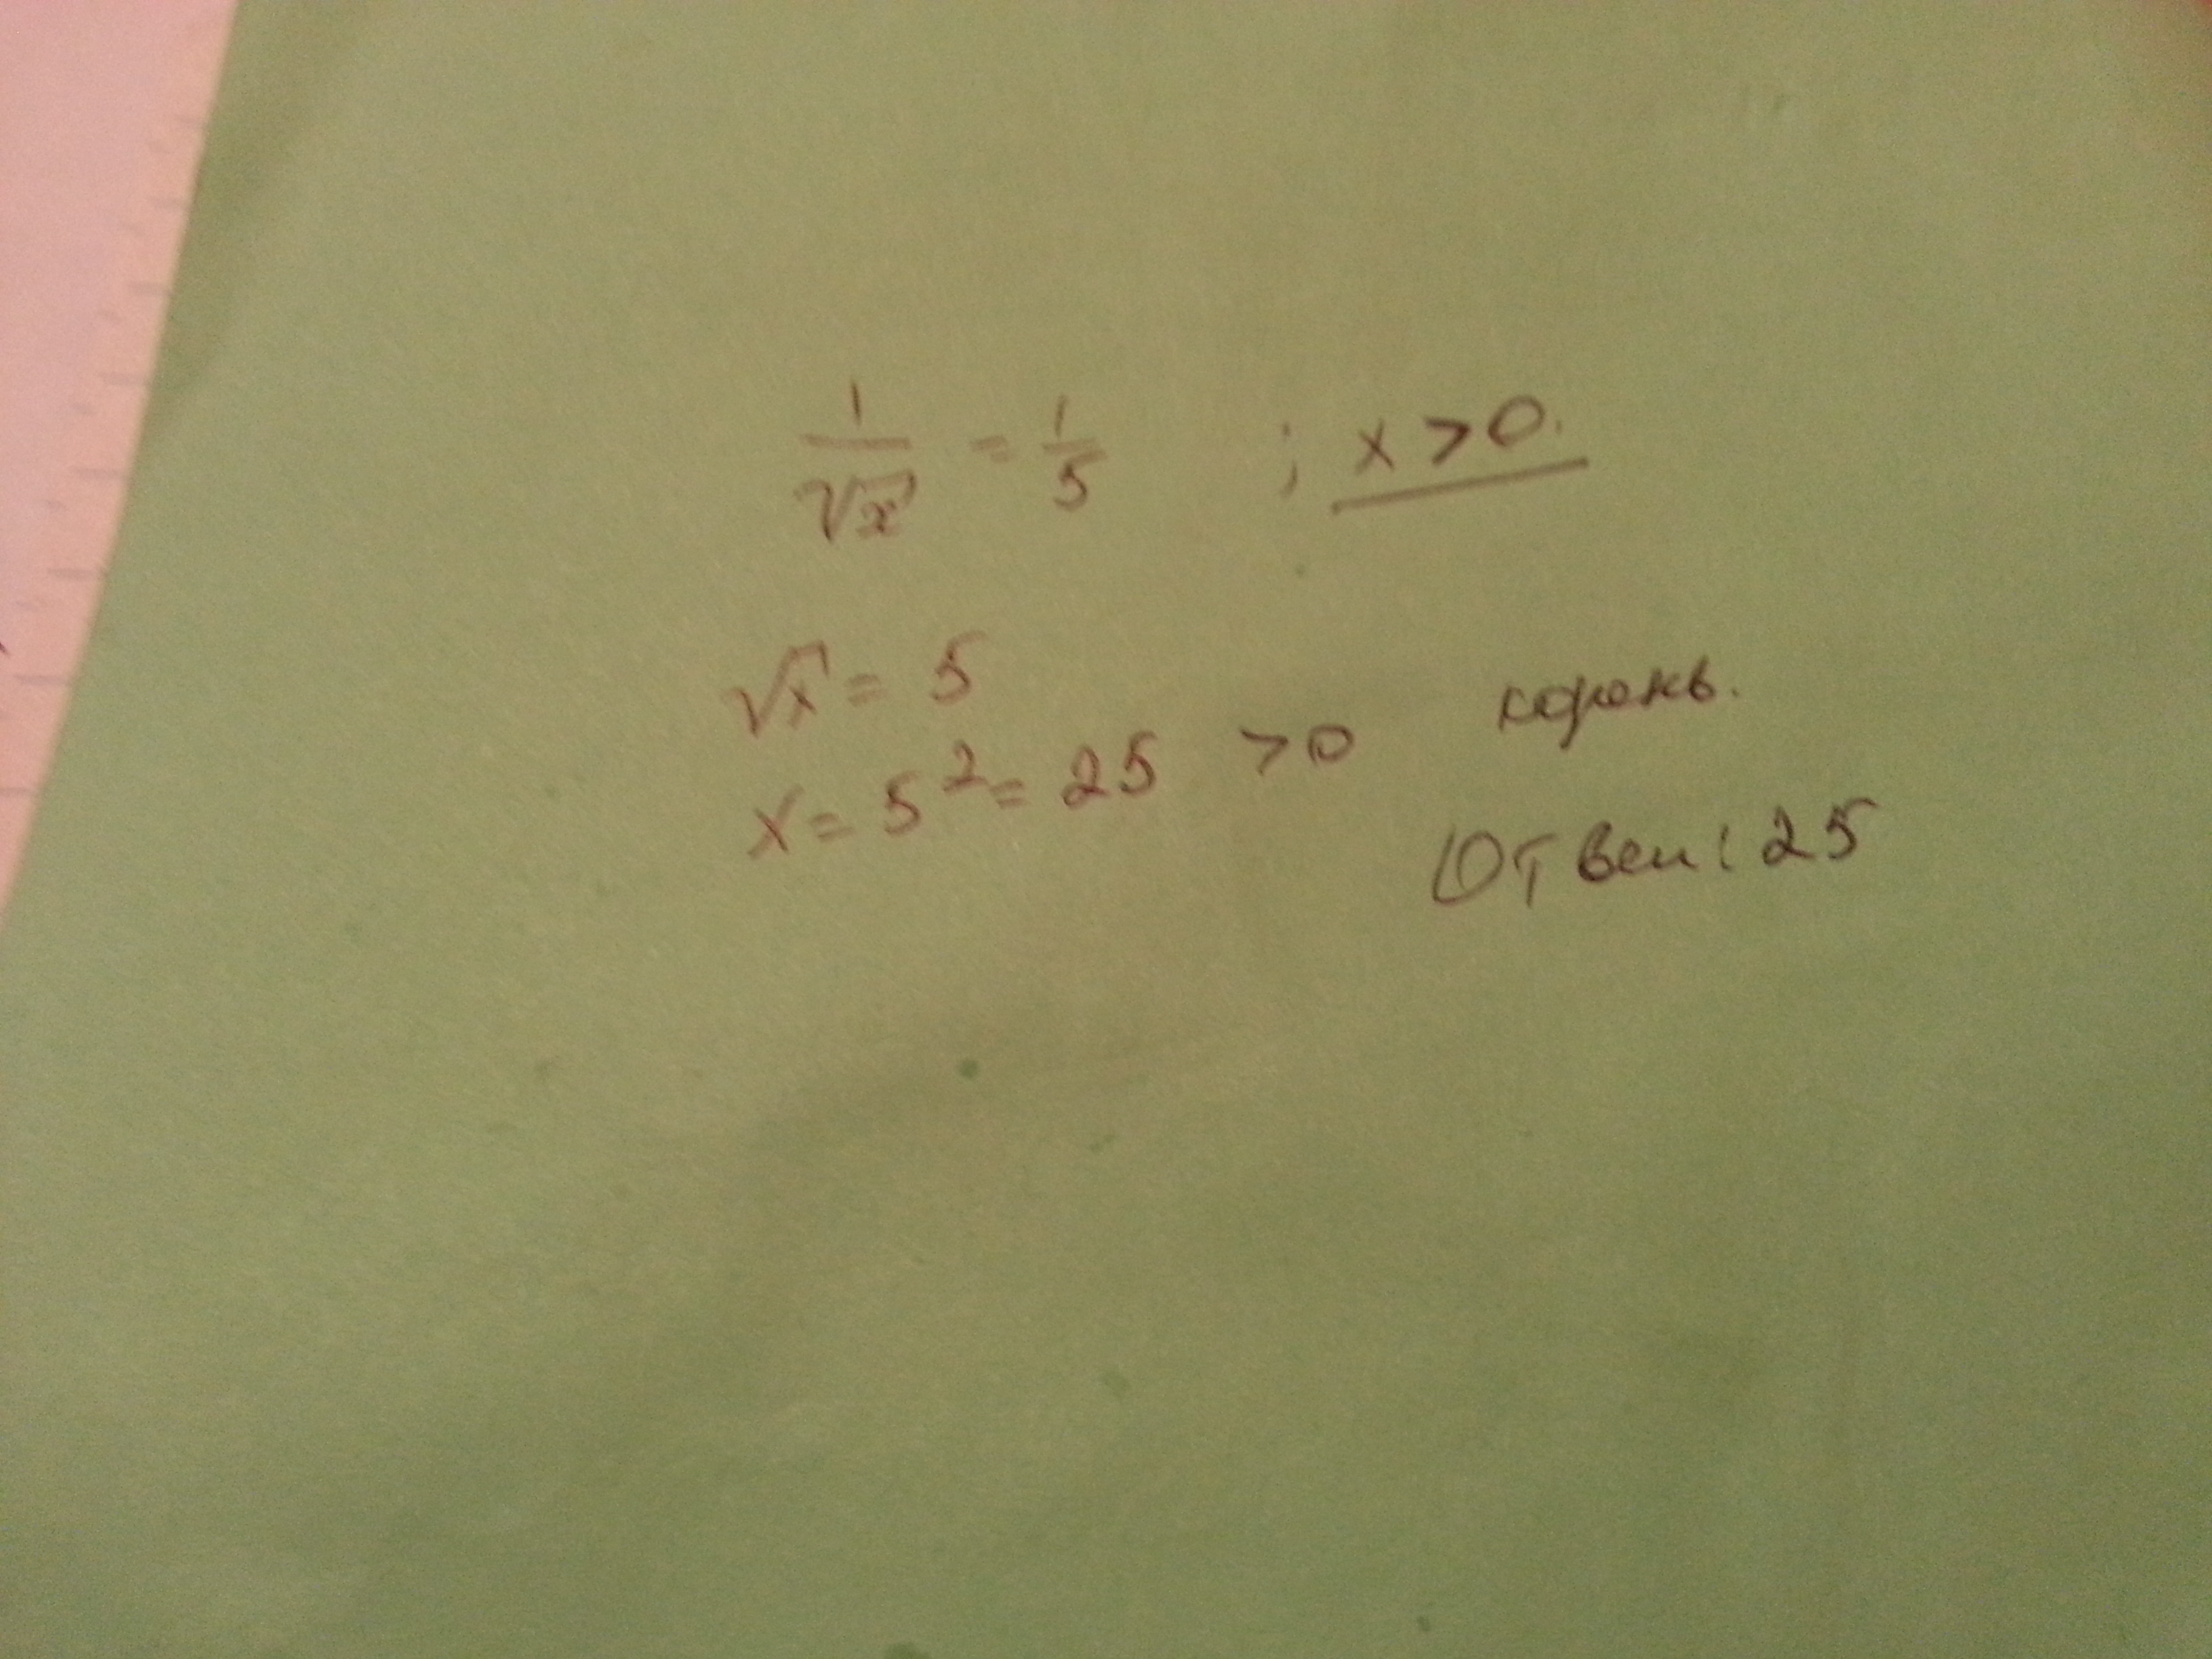 1/√x = 1/5 ; x > 0.
√x = 5
x = 5² = 25 > 0 корень.
Ответ: 25